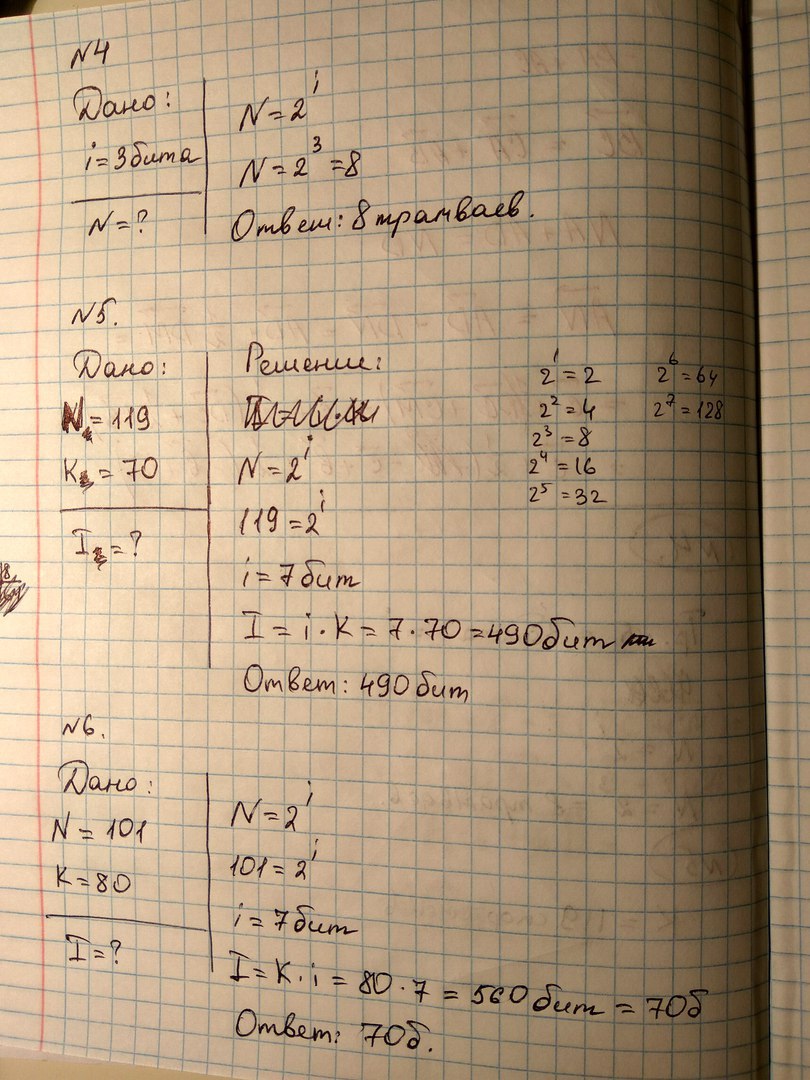 N4
Дано:
i = 3 бита
N = ?
N = 2^i
N = 2^3 = 8
Ответ: 8 трамваев.
N5.
Дано:
N = 119
K = 70
I = ?
Решение:
N = 2^i
119 = 2^i
i = 7 бит
I = i · K = 7 · 70 = 490 бит
Ответ: 490 бит
2^1 = 2
2^2 = 4
2^3 = 8
2^4 = 16
2^5 = 32
2^6 = 64
2^7 = 128
N6.
Дано:
N = 101
K = 80
I = ?
N = 2^i
101 = 2^i
i = 7 бит
I = K · i = 80 · 7 = 560 бит = 70б
Ответ: 70б.